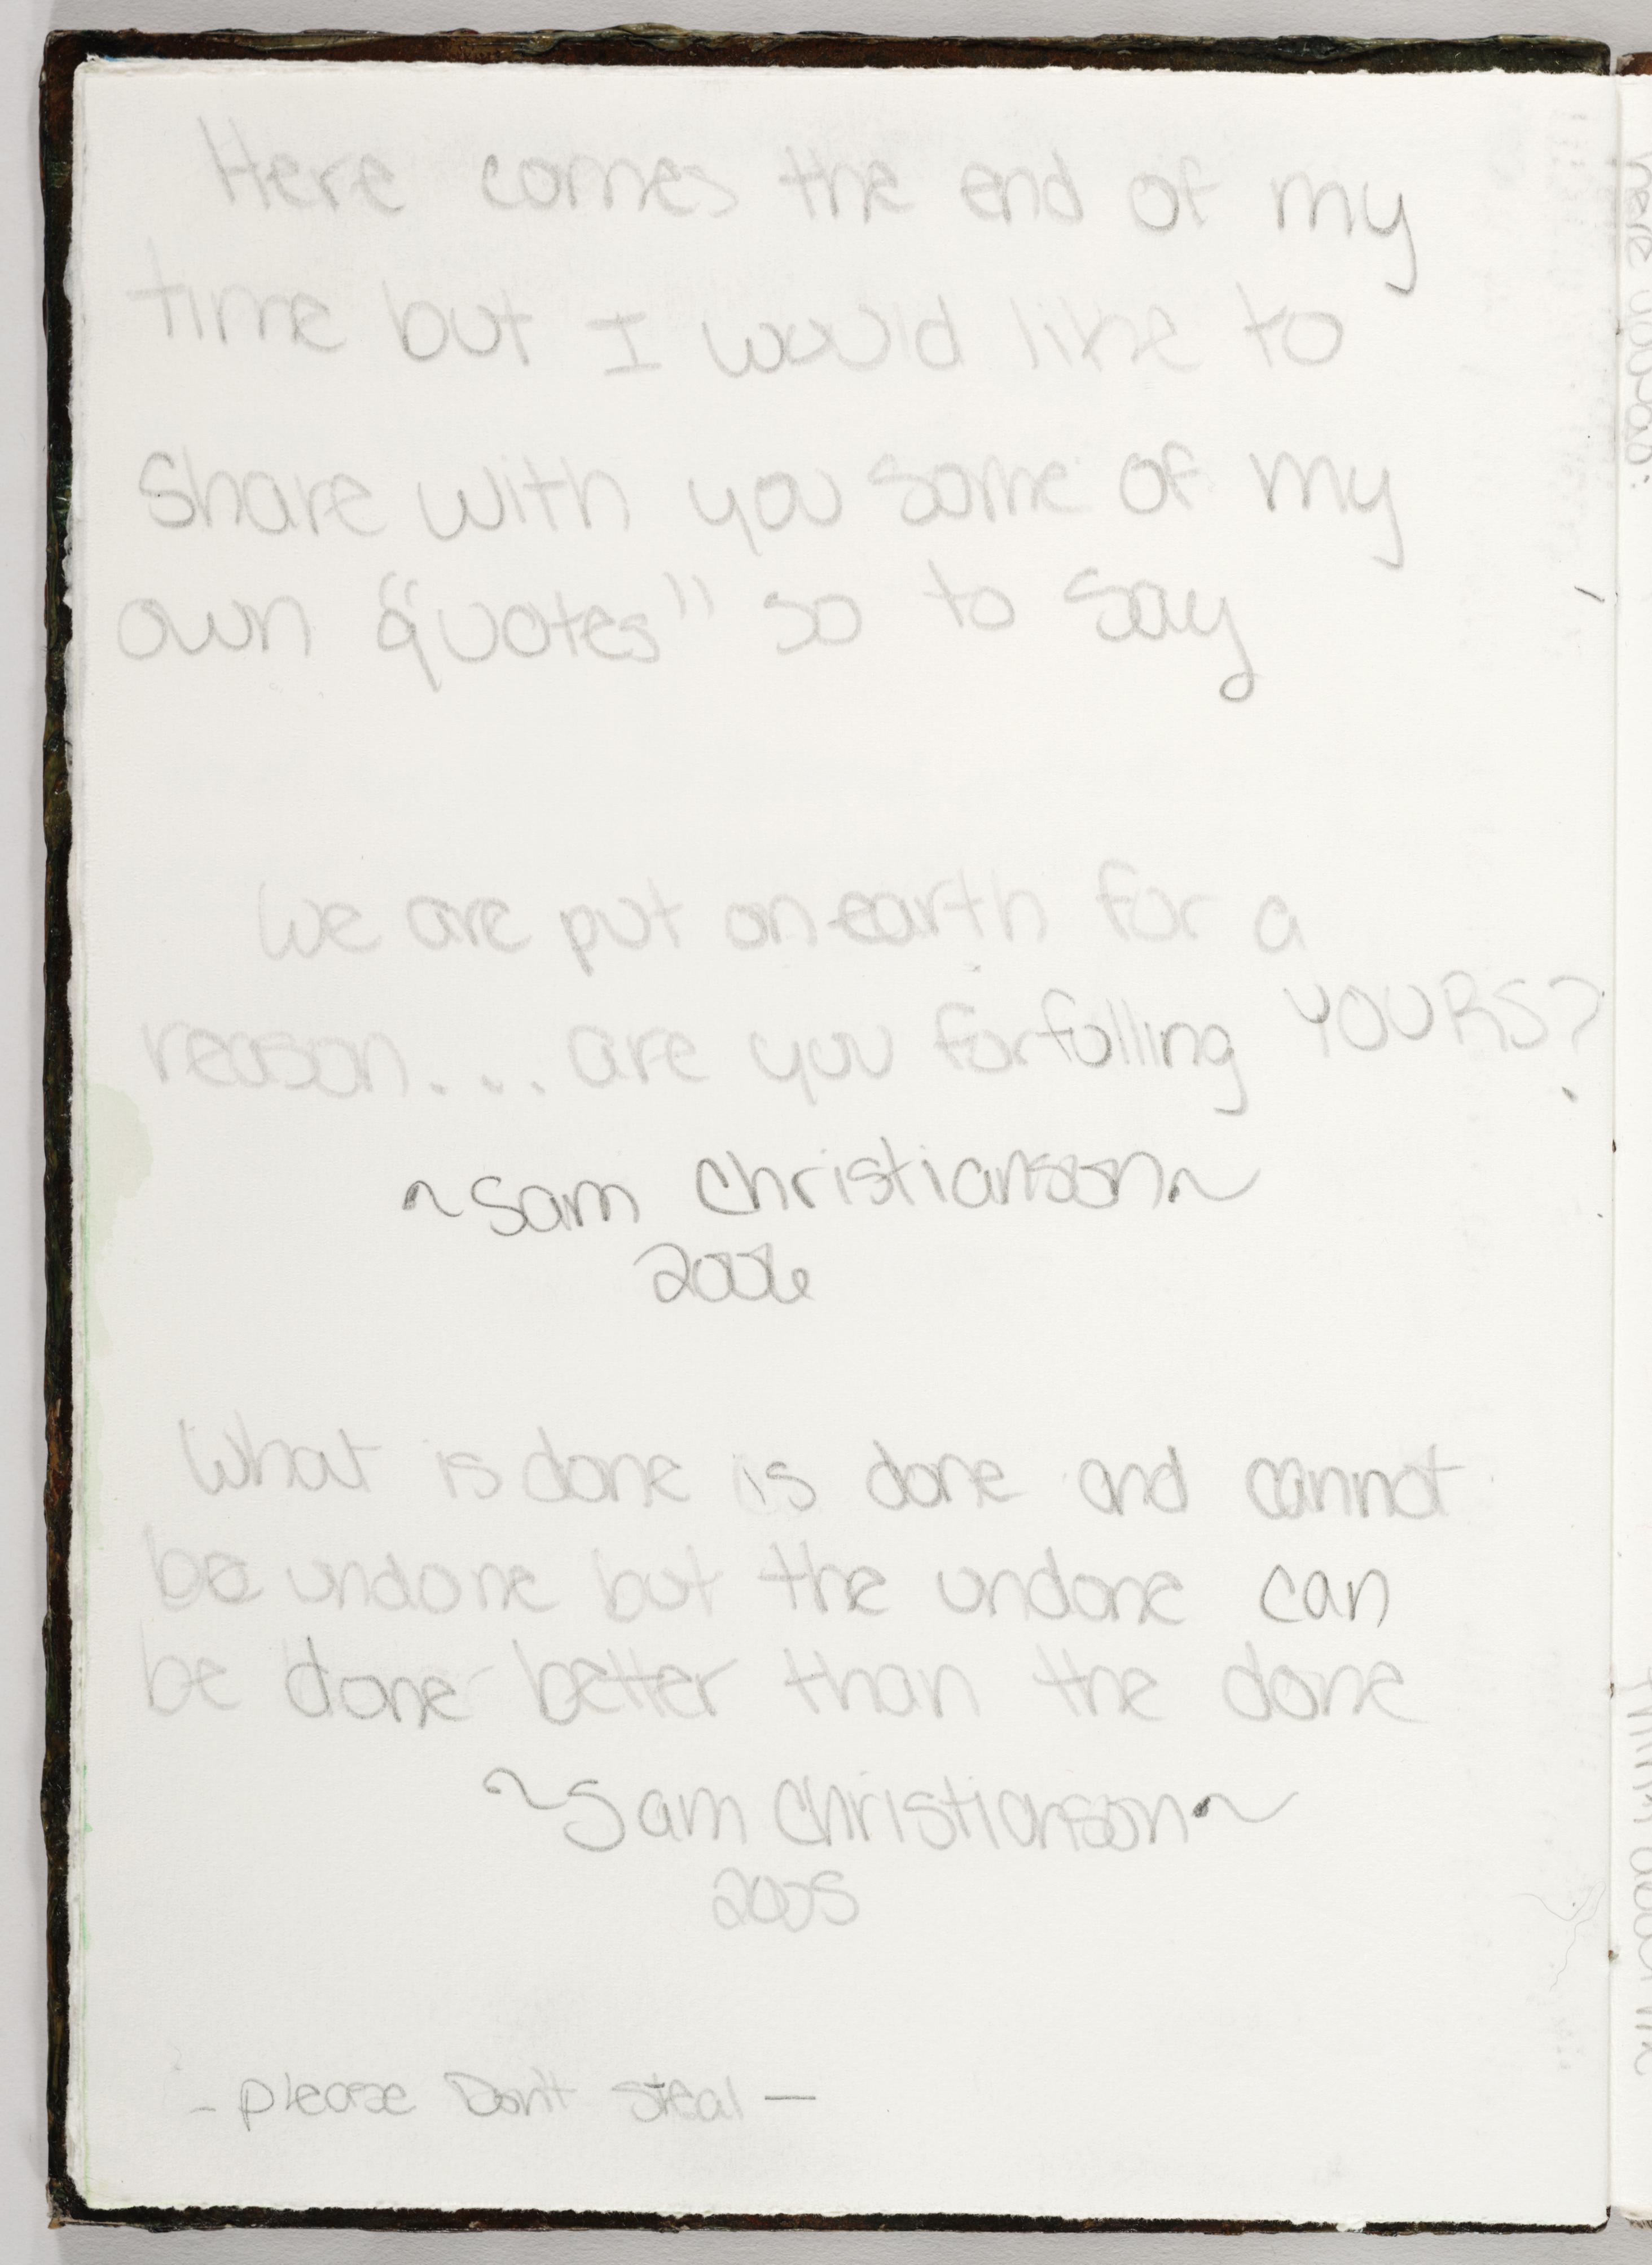 Here comes the end of my
time but I would like to
share with you some of my
own "quotes" so to say
We are put on earth for a
reason... are you forfulling YOURS?
~Sam Christianson~
2006
What is done is done and cannot
be undone but the undone can
be done better than the done
~Sam Christianson~
2005
- please Don't Steal —